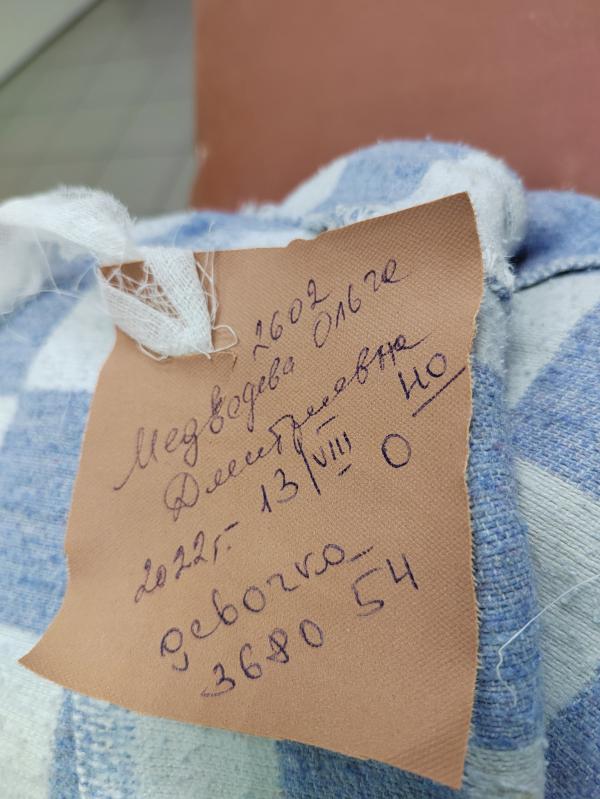 2602
Медведева Ольга
Дмитриевна
2022г. 13/VIII 0 40
девочка
3680 54